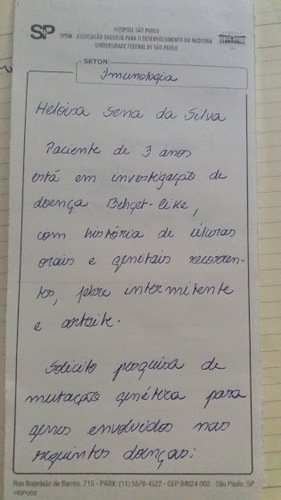 SP
HOSPITAL SÃO PAULO
SPDM ASSOCIAÇÃO PAULISTA PARA O DESENVOLVIMENTO DA MEDICINA
UNIVERSIDADE FEDERAL DE SÃO PAULO
SETOR:
Imunologia
Heloisa Sena da Silva
Paciente de 3 anos
está em investigação de
doença Behçet-like,
com história de úlceras
orais e genitais recorren-
tes, febre intermitente
e artrite.
Solicito pesquisa de
mutação genética para
genes envolvidos nas
seguintes doenças:
Rua Napoleão de Barros, 715 - PABX: (11) 5576-4522 - CEP 04024-002 - São Paulo, SP
HSP003